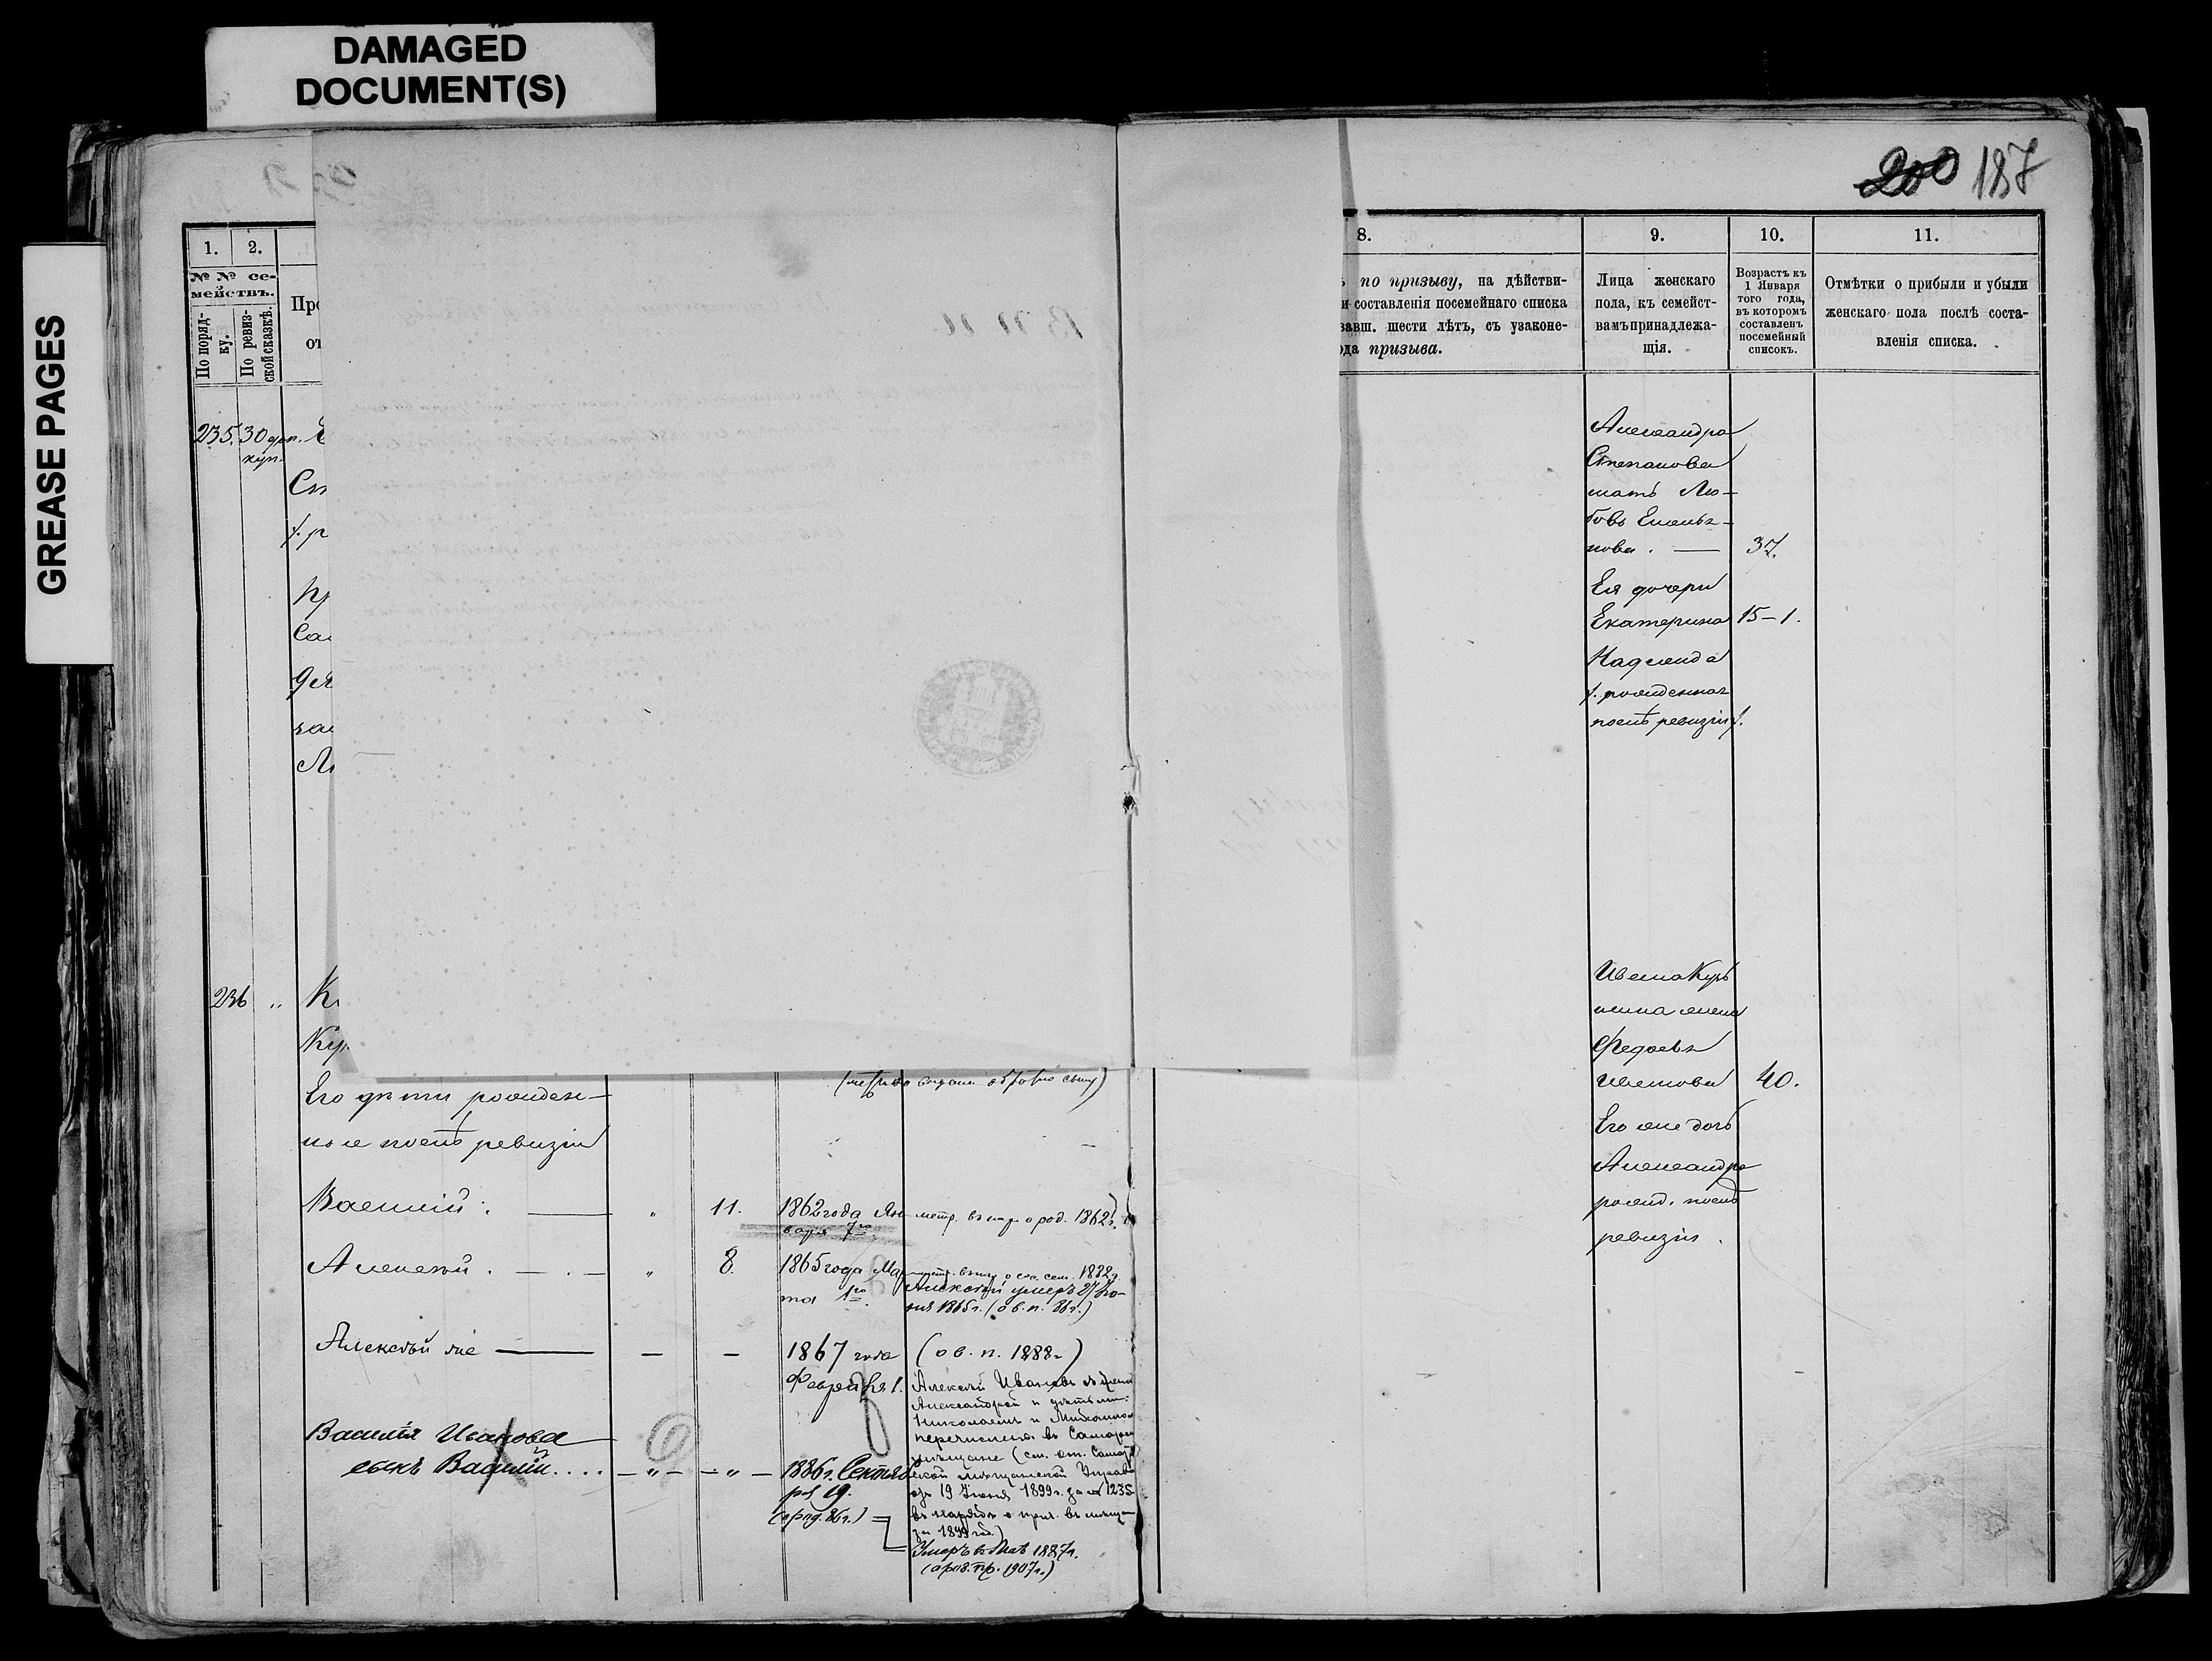 DAMAGED
DOCUMENT(S)
GREASE PAGES
200 187
1. 2.
№ № се-
мействъ.
По поряд-
ку.
По ревиз-
ской сказкѣ.
235. 30
куп.
236 "
Его дѣти рожден-
ные послѣ ревизіи
Василій . — " 11. 1862 года Ян-
варя 7го.
метр. о род. 1862 г.
Алексѣй . — . — " 8. 1865 года Мар-
та 1го.
Алексѣй умеръ 27 Iю-
ня 1865 г. (о в. п. 86 г.)
Алексѣй же — — — 1867 года (о в. п. 1888 г.)
Февраля 1.
Алексѣй Ивановъ съ женой
Александрой и дѣтьми:
Николаемъ и Михаиломъ
перечисленъ въ Самарск
мѣщане (см. от. Самар
ской мѣщанской Управы
отъ 19 Iюня 1899 г. за № 1235
за 1899 год.)
Василія Иванова
сынъ Василій.... — " — — " — 1886 г. Сентяб
ря 19.
(о род. 86 г.)
Умеръ въ Маѣ 1887 г.
(а роз. пр. 1907 г.)
8. 9. 10. 11.
по призыву, на дѣйстви-
и составленія посемейнаго списка
завш. шести лѣтъ, съ узаконе-
ода призыва.
Лица женскаго
пола, къ семейст-
вамъ принадлежа-
щія.
Возрастъ къ
1 Января
того года,
въ которомъ
составленъ
посемейный
списокъ.
Отмѣтки о прибыли и убыли
женскаго пола послѣ соста-
вленія списка.
Александра
Степанова
мать Лю-
бовь Емелья-
нова . — 37.
Ея дочери
Екатерина 15–1.
Надежда
/. рожденная
послѣ ревизіи /.
Ивана Кузь
мина жена
Федосья
Иванова 40.
Его же дочь
Александра
рожд. послѣ
ревизіи .